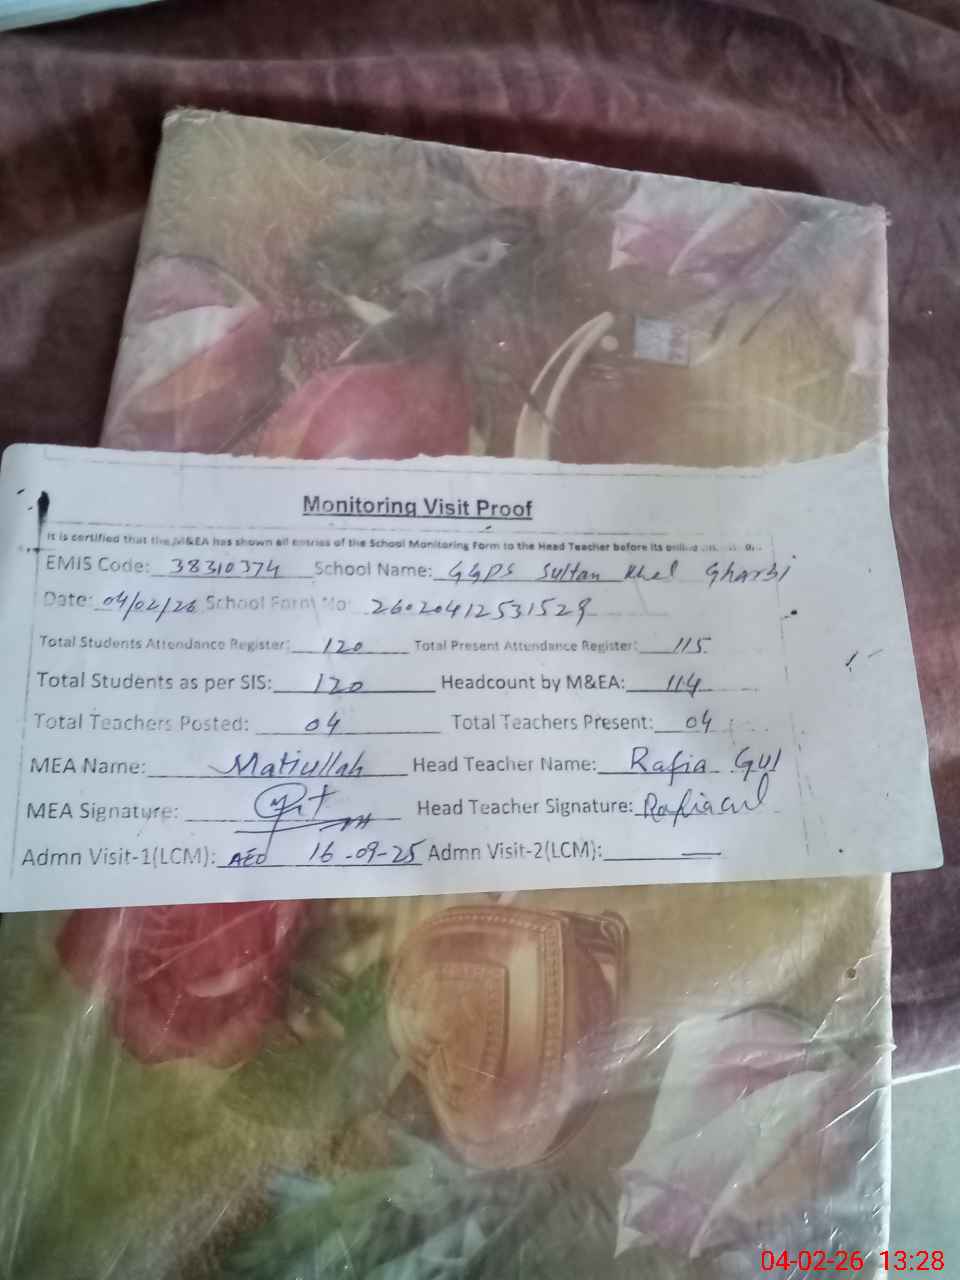 Monitoring Visit Proof
It is certified that the M&EA has shown all entries of the School Monitoring Form to the Head Teacher before its online
EMIS Code: 38310374 School Name: GGPS Sultan Khel Gharbi
Date: 04/02/26 School Form No: 26020412531529
Total Students Attendance Register: 120 Total Present Attendance Register: 115
Total Students as per SIS: 120 Headcount by M&EA: 114
Total Teachers Posted: 04 Total Teachers Present: 04
MEA Name: Matiullah Head Teacher Name: Rafia Gul
MEA Signature: Head Teacher Signature: Rafia Gul
Admn Visit-1(LCM): AEO 16-09-25 Admn Visit-2(LCM): —
04-02-26 13:28